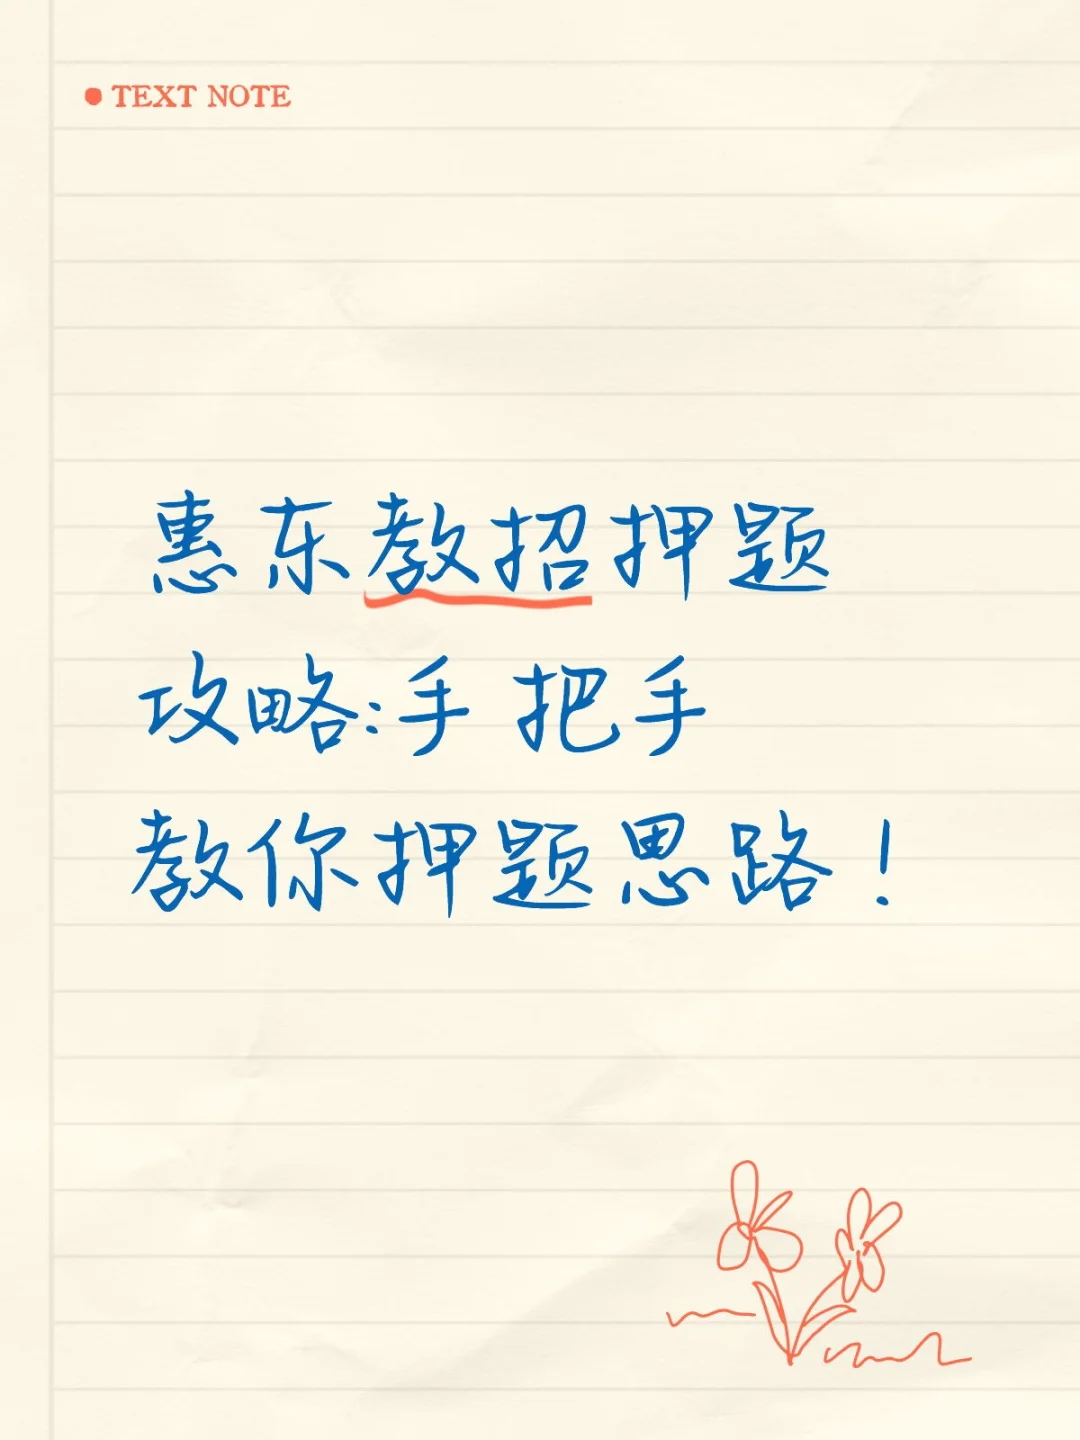 TEXT NOTE
惠东教招押题
攻略:手把手
教你押题思路!